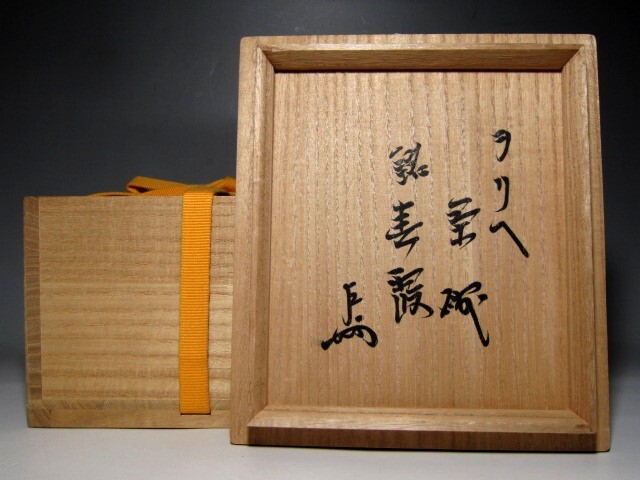 ヲリヘ
茶碗
銘 春霞